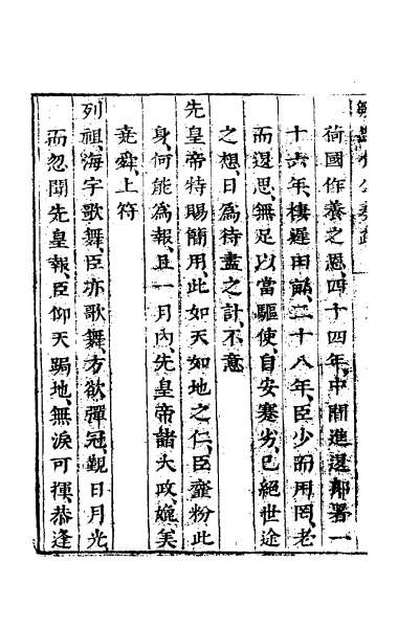 荷國作養之恩、四十四年、中間進退郎署一
十六年、棲遲田畝、二十八年、臣少而用罔、老
而還思、無足以當驅使、自安蹇劣、已絕世途
之想、日為待盡之計、不意
先皇帝特賜簡用、此如天如地之仁、臣虀粉此
身、何能為報、且一月內、先皇帝諸大政、媲美
堯舜、上符
列祖、海宇歌舞、臣亦歌舞、方欲彈冠、觀日月光
而忽聞先皇報、臣仰天蹐地、無淚可揮、恭逢